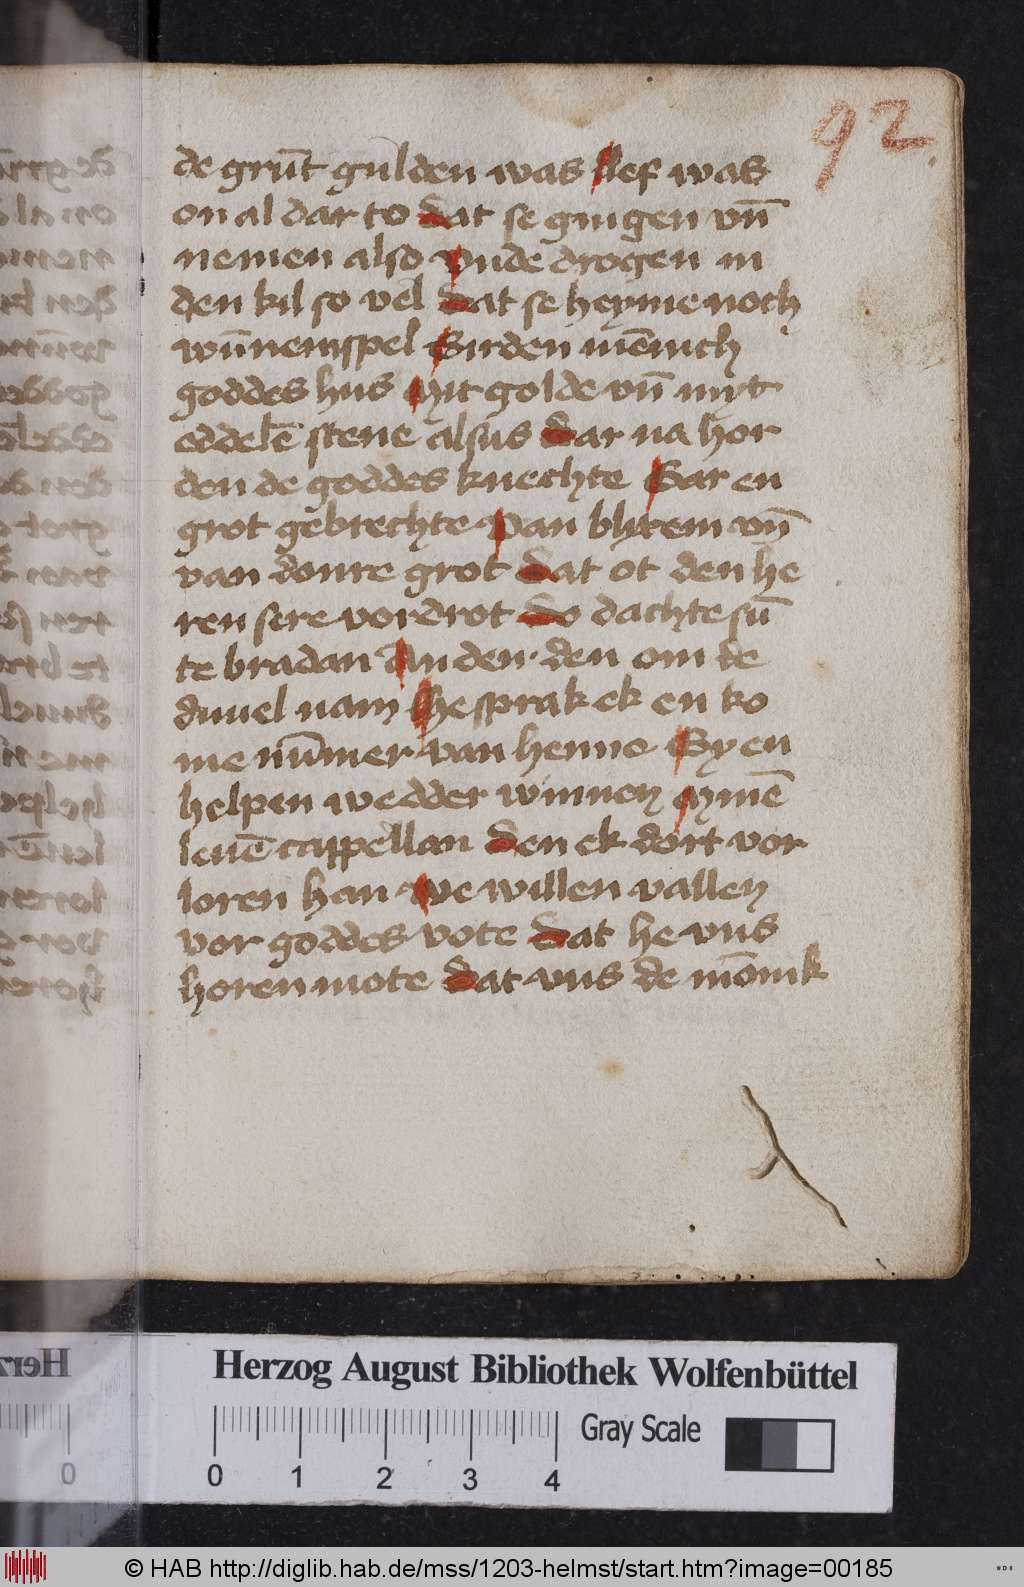 92.
de grūt gulden was llef was
on al dar to dat se gingen vn̄
nemen also vnde drogen in
den kil so vel dat se heyme noch
wūnemspel Girden mēnich
goddes hus Mit golde vn̄ myt
eddelē stene alsus dar na hor
den de goddes knechte Gar en
grot gebrechte Van blixem vn̄
van donre grot dat ot den he
ren sere vordrot do dachte sū
te bradan An den den om de
duuel nam he sprak ek en ko
me nūmer van henne Gy en
helpen wedder winnen mynē
leuē cappellan den ek dort vor
loren han We willen vallen
vor goddes vote dat he vns
horen mote dat vns de mōnik
Herzog August Bibliothek Wolfenbüttel
Gray Scale
0 1 2 3 4
© HAB http://diglib.hab.de/mss/1203-helmst/start.htm?image=00185